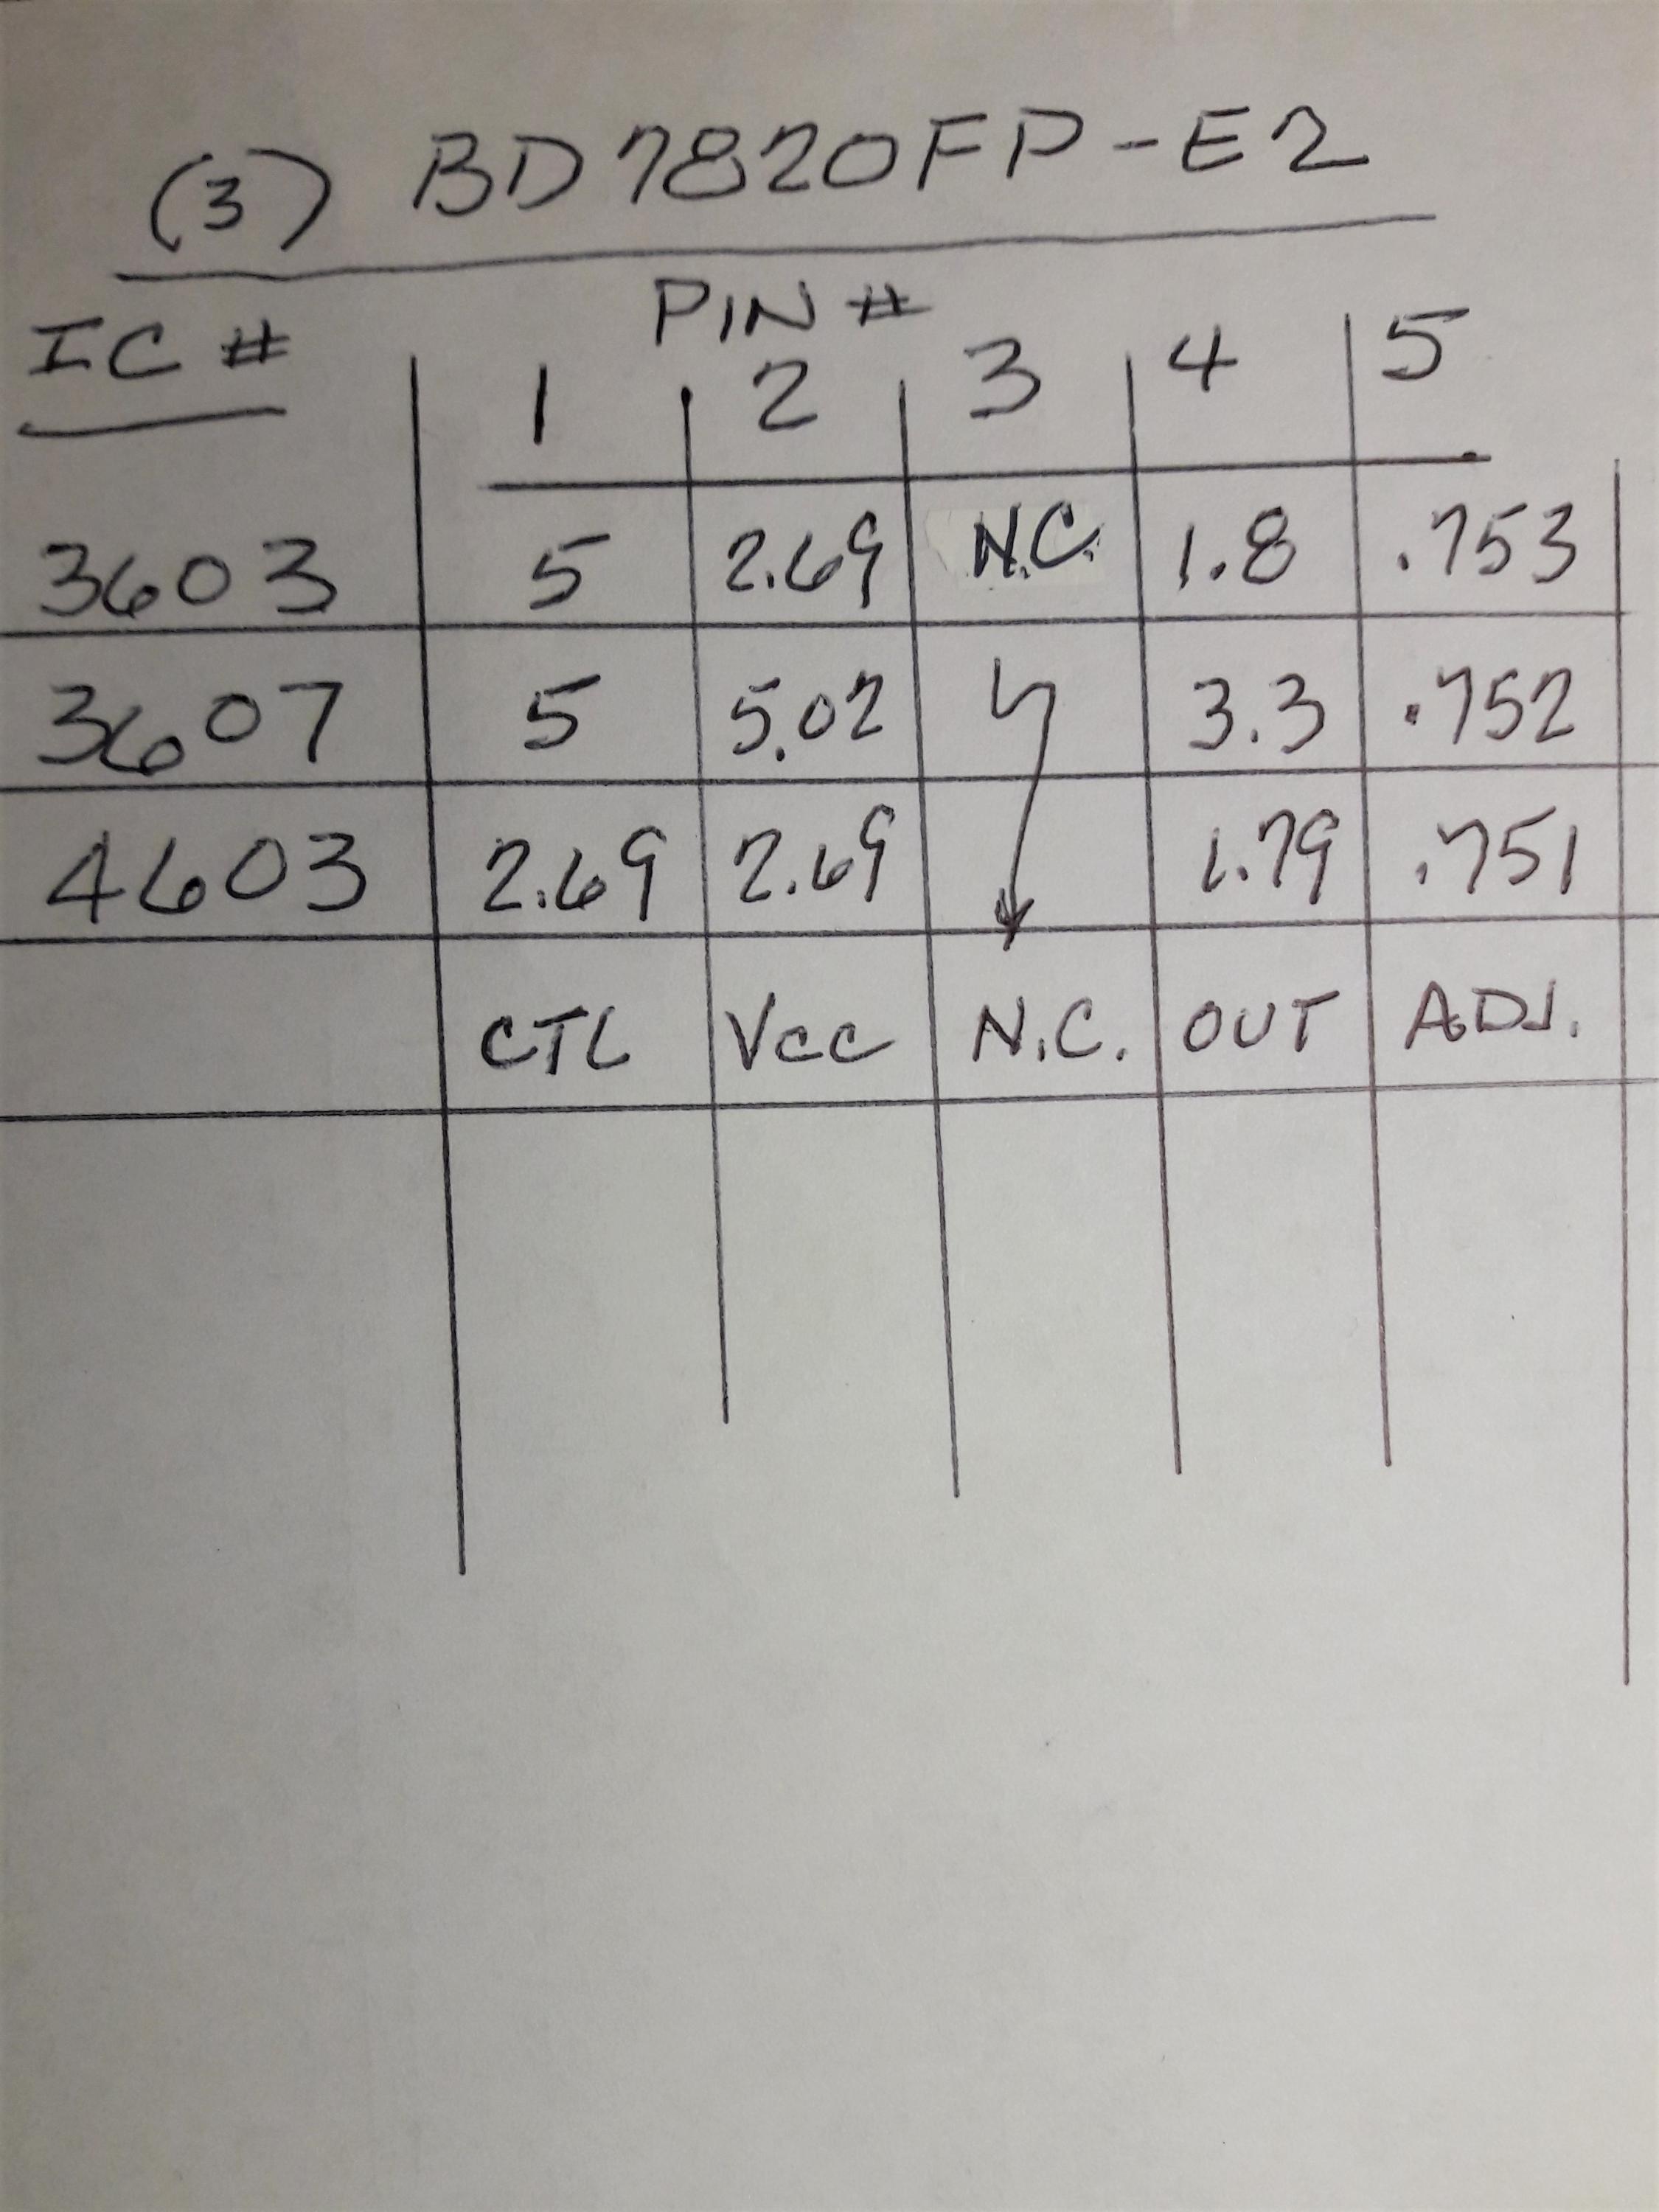 (3) BD7820FP-E2
PIN #
IC # 1 2 3 4 5
3603 5 2.69 N.C. 1.8 .753
3607 5 5.02 3.3 .752
4603 2.69 2.69 1.79 .751
CTL Vcc N.C. OUT ADJ.